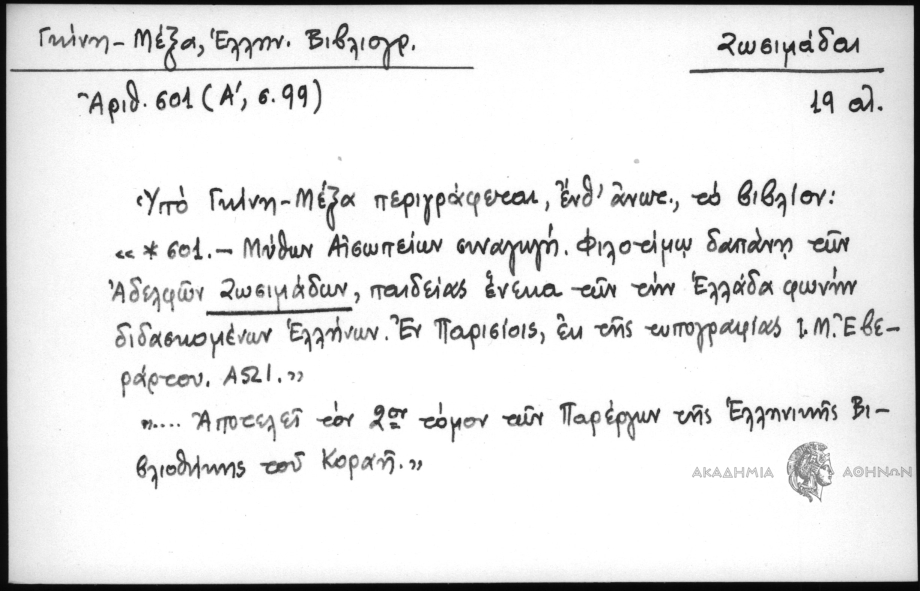 Γκίνη - Μέξα, Ἑλλην. Βιβλιογρ.
Ζωσιμάδαι
Ἀριθ. 601 (Α΄, σ. 99)
19 αἰ.
Ὑπὸ Γκίνη-Μέξα περιγράφεται, ἔνθ' ἄνωτ., τὸ βιβλίον:
« * 601. – Μύθων Αἰσωπείων συναγωγή. Φιλοτίμῳ δαπάνῃ τῶν
Ἀδελφῶν Ζωσιμάδων, παιδείας ἕνεκα τῶν τὴν Ἑλλάδα φωνὴν
διδασκομένων Ἑλλήνων. Ἐν Παρισίοις, ἐκ τῆς τυπογραφίας Ι. Μ. Ἐβε-
ράρτου. ΑΩΙ.»
».... Ἀποτελεῖ τὸν 2ον τόμον τῶν Παρέργων τῆς Ἑλληνικῆς Βι-
βλιοθήκης τοῦ Κοραῆ.»
ΑΚΑΔΗΜΙΑ ΑΘΗΝΩΝ